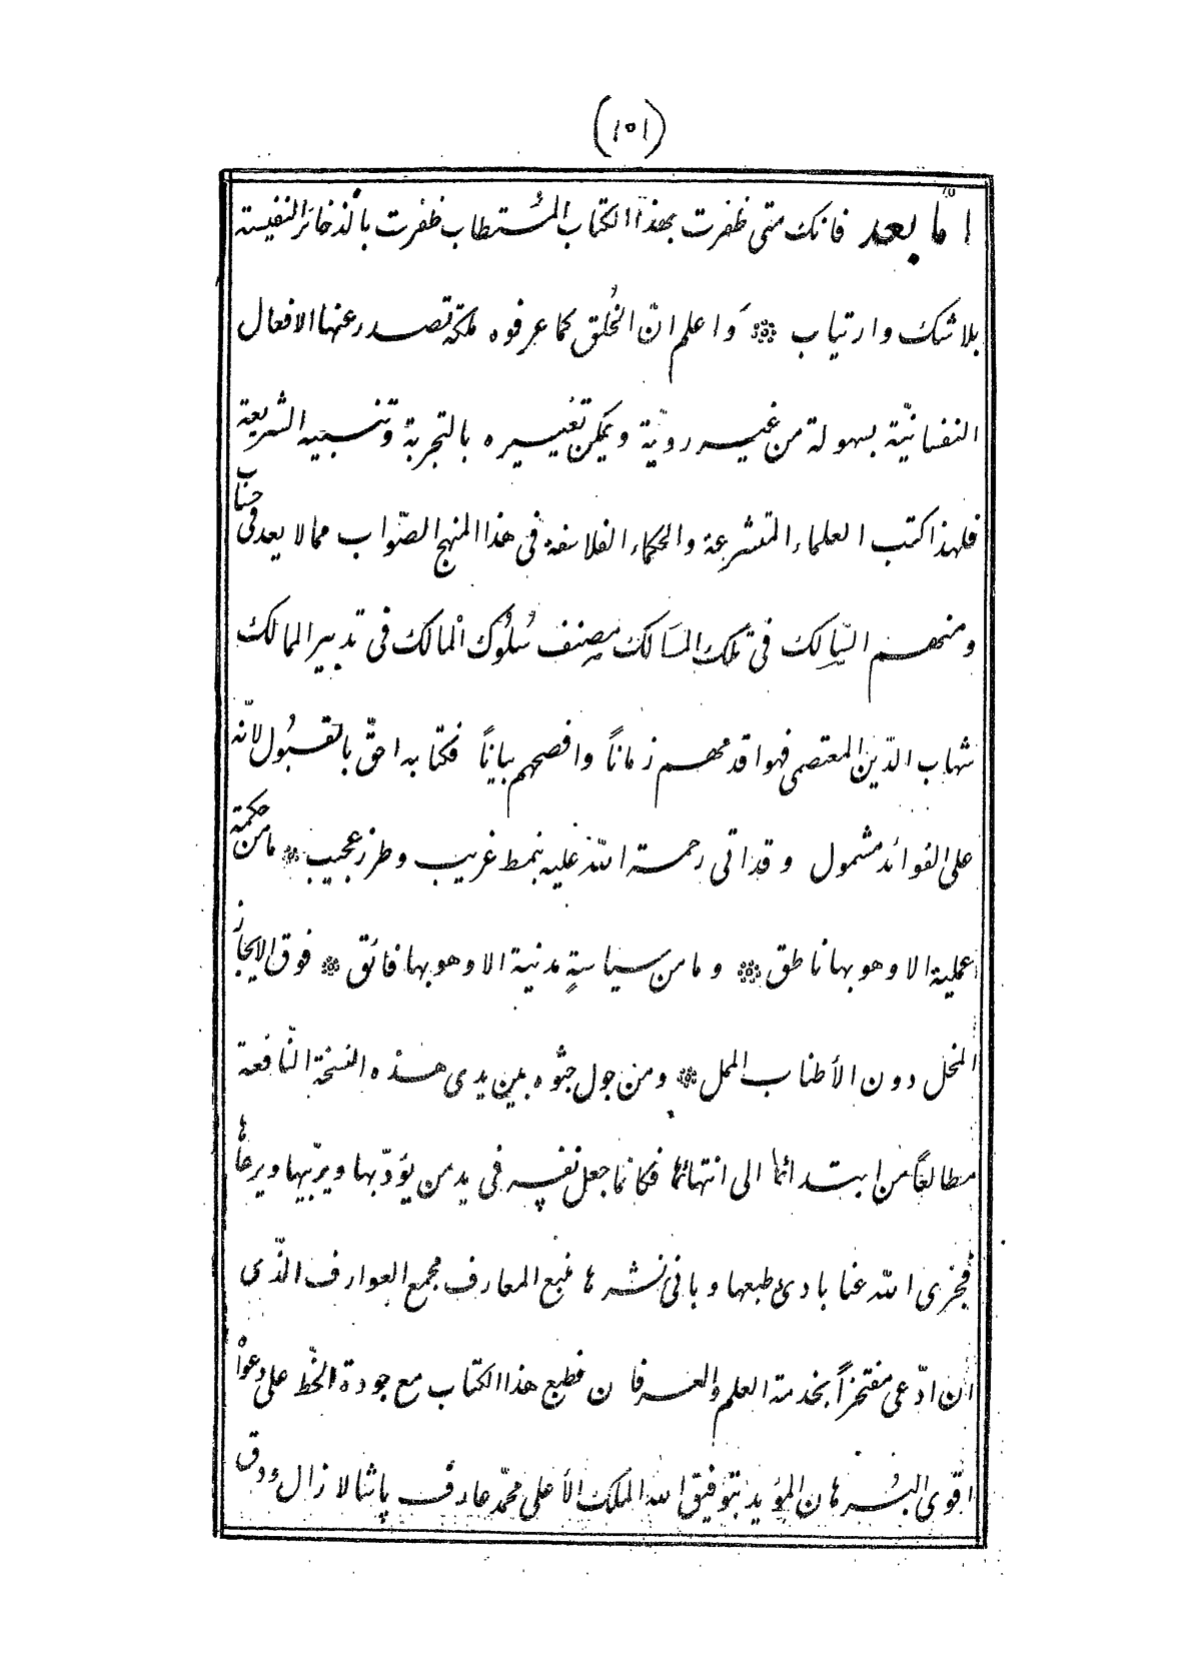 (١٥١)
امّا بعد فانك متى ظفرت بهذا الكتاب المُستطاب ظفرت بالذخائر النفيسة
بلا شك وارتياب ۞ وَاعلم انّ الخُلق كما عرفوه ملكة تصدر عنها الافعال
النفسانيّة بسهولة من غير رويّة ويمكن تغييره بالتجربة وتنبيه الشريعة
فلهذا كتب العلماء المتشرعة والحكماء الفلاسفة فى هذا المنهج الصّواب مما لا يعد فى حساب
ومنهم السّالك فى تلك المسَالك مصنف سُلوُك المالك فى تدبير الممالك
شهاب الدّين المعتصمى فهو اقدمهم زماناً وافصحهم بياناً فكتابه احقّ بالقبُول لانّه
على الفوائد مشمول وقد اتى رحمة اللّه عليه بنمط غريب وطرز عجيب ۞ ما من حكمة
عملية الا وهو بها ناطق ۞ وما من سياسةٍ مدنية الا وهو بها فائق ۞ فوق الايجاز
المخل دون الأطناب الممل ۞ ومن جول جثوه بين يدى هذه النسخة النّافعة
مطالعاً من ابتدائها الى انتهائها فكانما جعل نفسه فى يد من يؤدّبها ويربّيها ويرعاها
فجزى اللّه عنا بادئ طبعها وبانى نشرها منبع المعارف مجمع العوارف الذّى
ان ادّعى مفتخراً بخدمة العلم والعرفان فطبع هذا الكتاب مع جودة الخّط على دعواه
اقوى البُرهان المؤيد بتوفيق الله الملك الأعلى محمّد عارف پاشا لا زال ذوق